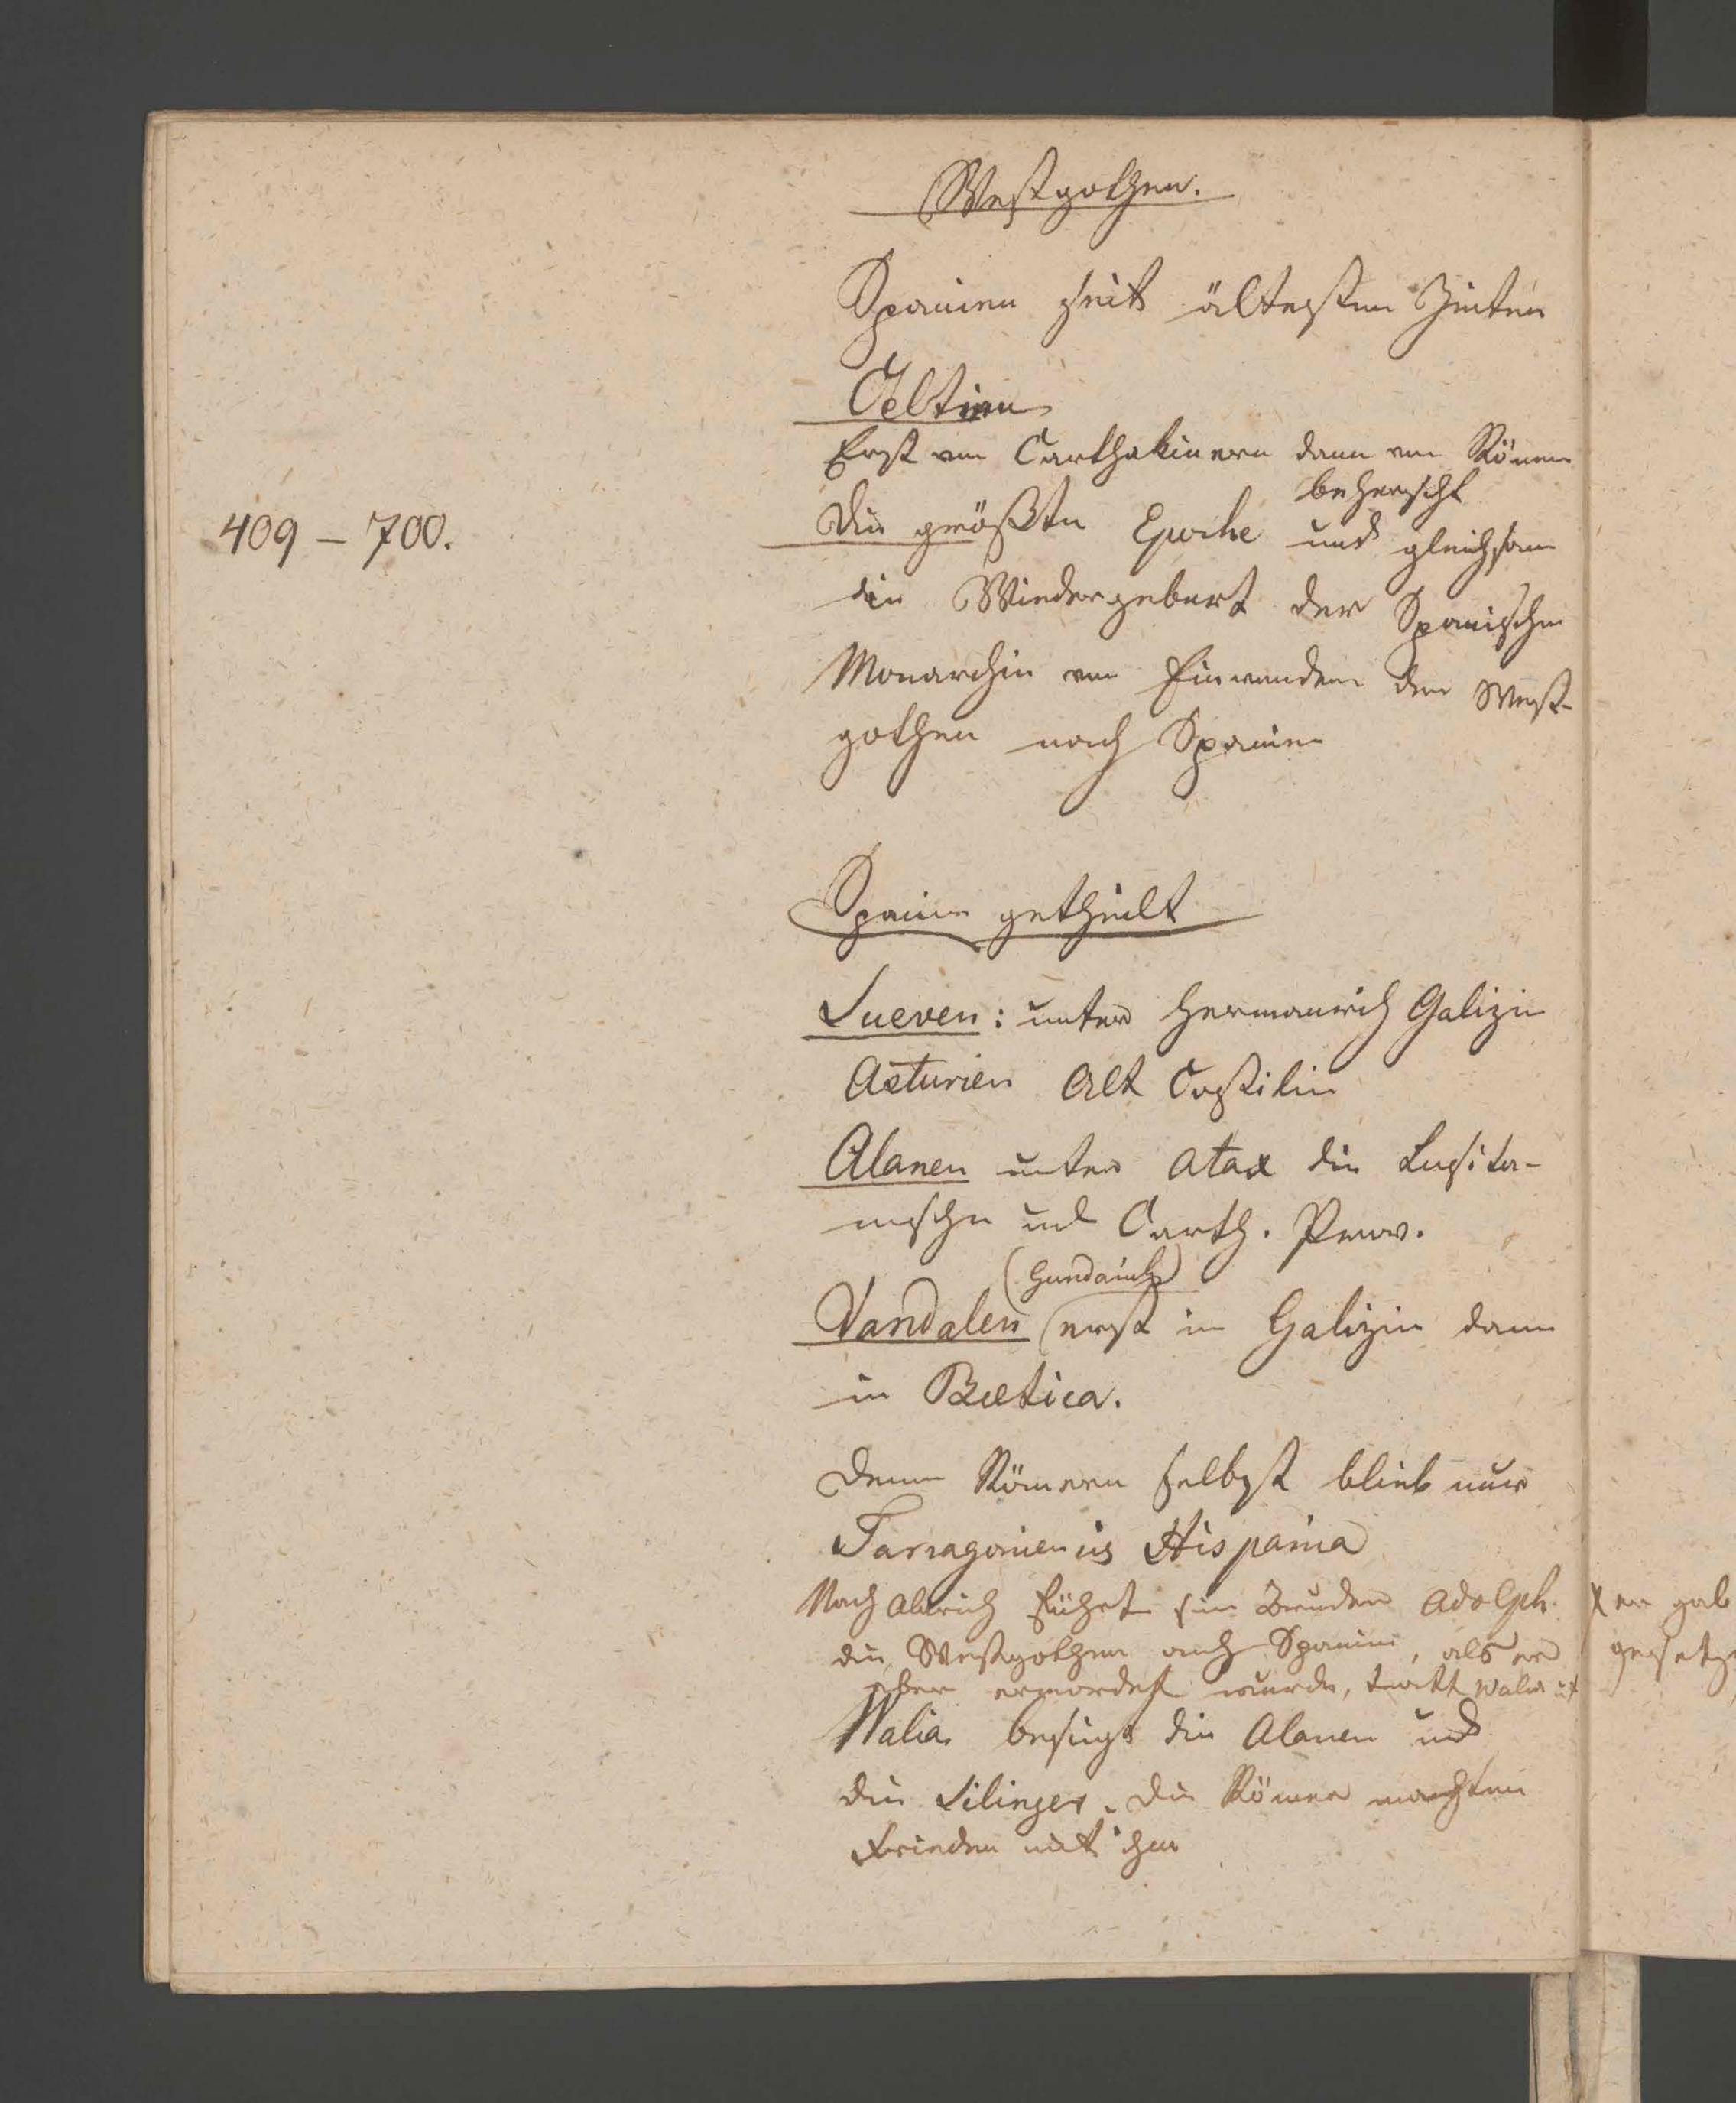 Westgothen.
Spanien seit ältesten Zeiten
Celtien
Erst von Carthakinern dann von Römern
beherscht
409 – 700.
Die größte Epoche und gleichsam
die Wiedergeburt der Spanischen
Monarchie vom Einwandern der West-
gothen nach Spanien
Spanien getheilt
Sueven: unter Hermanrich Galizien
Asturien Alt Castilien
Alanen unter Atax die Lusita-
nische und Carth. Prov.
(Gundarich)
Vandalen erst in Galizien dann
in Bætica.
Denn Römern selbst blieb nur
Tarragoniensis Hispania
Nach Alarich führte sein Bruder Adolph.
die Westgothen nach Spanien, als er
aber ermordet wurde, tratt Walia
Walia besiegt die Alanen und
die Silinger. Die Römer machten
Frieden mit ihm
x er gab
gesetze